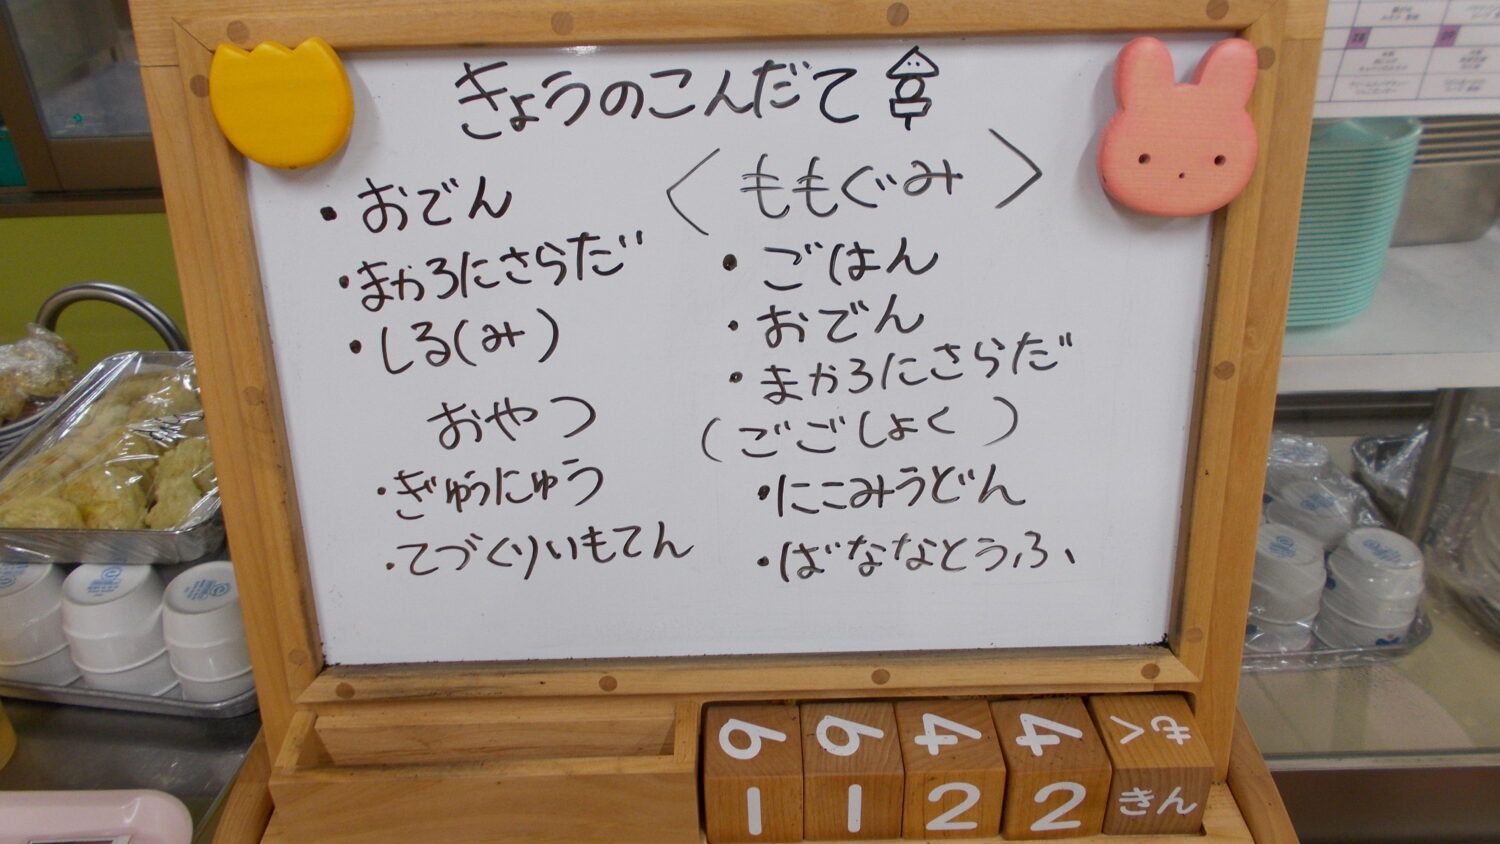 きょうのこんだて
・おでん
・まかろにさらだ
・しる(み)
おやつ
・ぎゅうにゅう
・てづくりいもてん
〈ももぐみ〉
・ごはん
・おでん
・まかろにさらだ
(ごごしょく)
・にこみうどん
・ばななとうふ
6 6 4 4 もく
1 1 2 2 きん